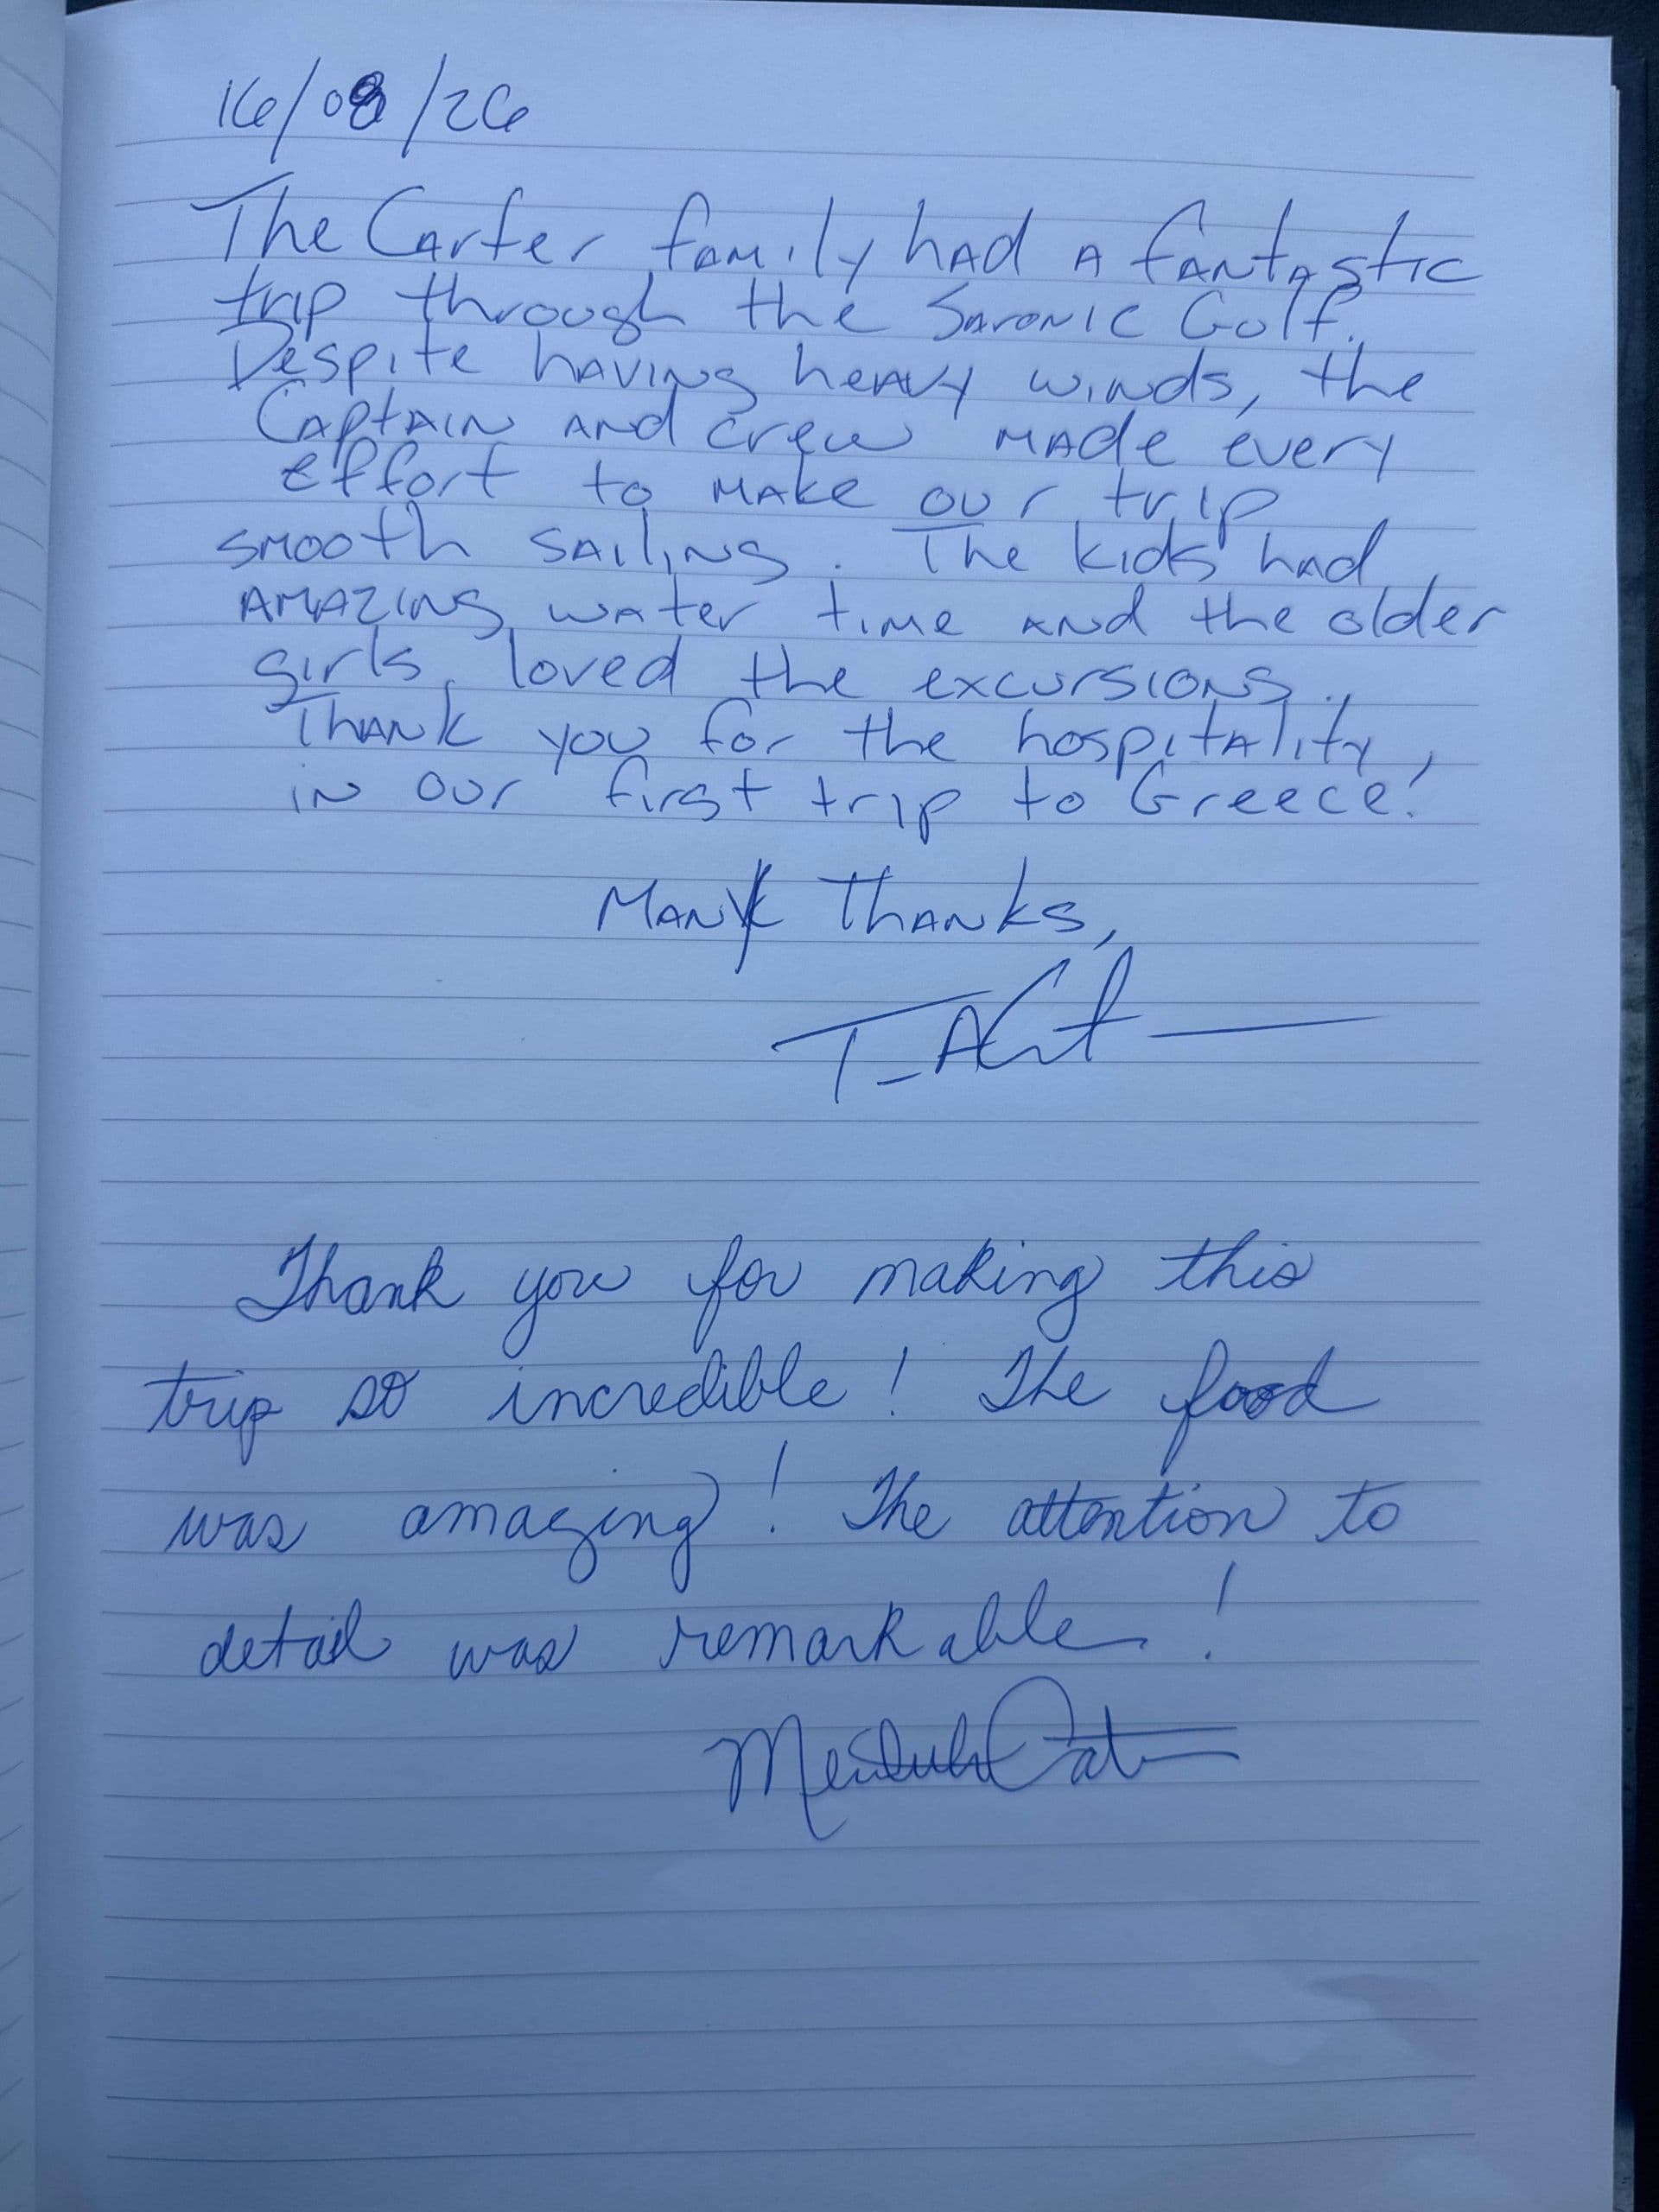 16/08/26
The Carter family had a fantastic
trip through the Saronic Golf.
Despite having heavy winds, the
Captain and crew made every
effort to make our trip
smooth sailing. The kids had
amazing water time and the older
girls loved the excursions.
Thank you for the hospitality,
in our first trip to Greece!
Many Thanks,
Thank you for making this
trip so incredible! The food
was amazing! The attention to
detail was remarkable!